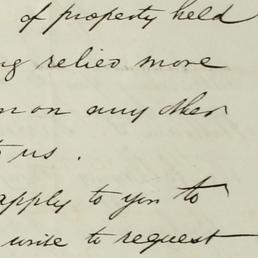 of property held
ng relied more
n on any other
to us.
apply to you to
write to request